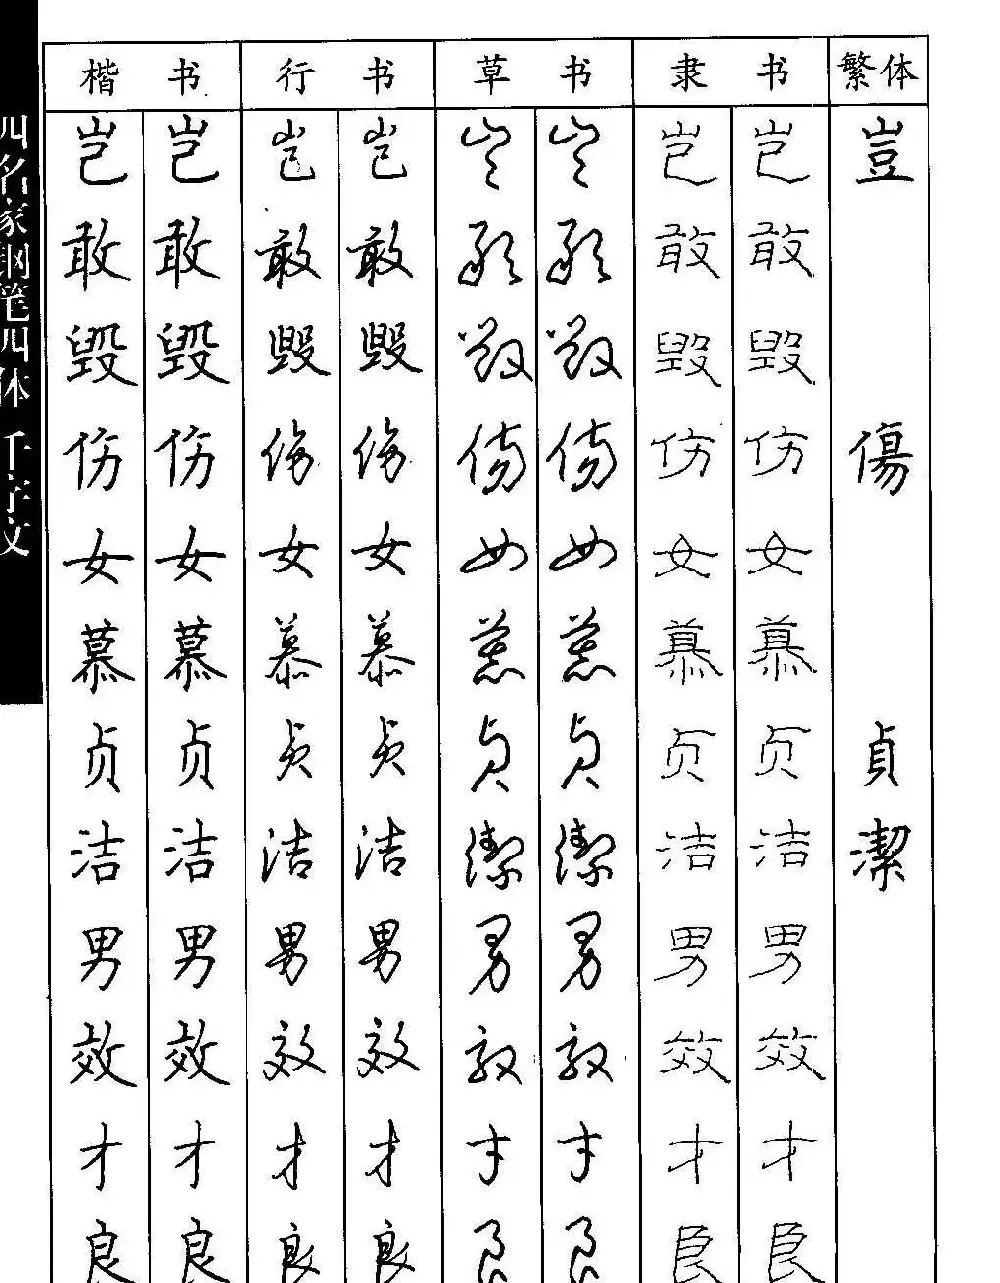 四名家钢笔四体 千字文
楷书 行书 草书 隶书 繁体
岂 岂 岂 岂 岂 岂 岂 岂 豈
敢 敢 敢 敢 敢 敢 敢 敢
毁 毁 毁 毁 毁 毁 毁 毁
伤 伤 伤 伤 伤 伤 伤 伤 傷
女 女 女 女 女 女 女 女
慕 慕 慕 慕 慕 慕 慕 慕
贞 贞 贞 贞 贞 贞 贞 贞 貞
洁 洁 洁 洁 潔 潔 洁 洁 潔
男 男 男 男 男 男 男 男
效 效 效 效 效 效 效 效
才 才 才 才 才 才 才 才
良 良 良 良 良 良 良 良